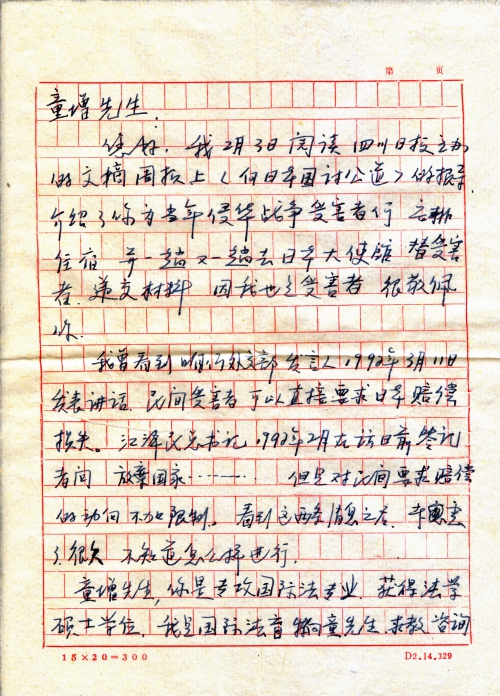 第 页
童增先生.
您好. 我2月3日阅读四川日报主办
的文摘周报上《向日本国讨公道》的报导
介绍了你为当年侵华战争受害者行
住宿 并一趟又一趟去日本大使馆 替受害
者.递交材料 因我也是受害者 很敬佩
你.
我曾看到 外交部发言人1992年3月11日
发表讲话.民间受害者可以直接要求日本赔偿
损失。江泽民总书记.1992年2月在访日前答记
者问 放弃国家………… 但是对民间要求赔偿
的动向不加限制。看到这两条消息之后.
了很久 不知道怎么样进行.
童增先生,你是专攻国际法专业.获得法学
硕士学位.我是国际法盲 特向童先生求教咨询
15×20=300 D2.14.329